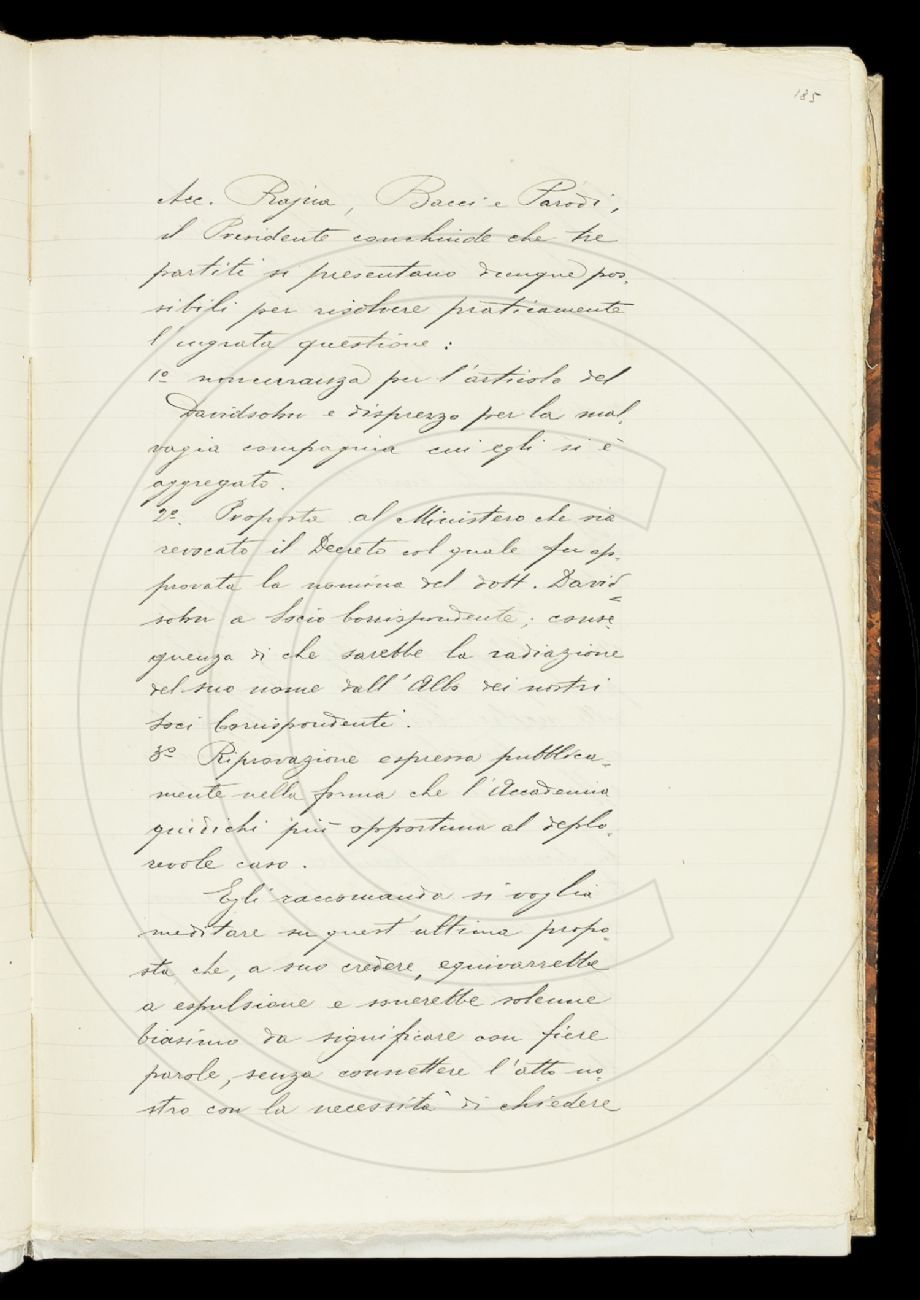 185
Acc. Rajna, Bacci e Parodi,
il Presidente conchiude che tre
partiti si presentano dunque pos-
sibili per risolvere praticamente
l'ingrata questione:
1º noncuranza per l'articolo del
Davidsohn e disprezzo per la mal-
vagia compagnia cui egli si è
aggregato.
2º. Proposta al Ministero che sia
revocato il Decreto col quale fu ap-
provata la nomina del dott. David-
sohn a Socio Corrispondente; conse-
guenza di che sarebbe la radiazione
del suo nome dall'Albo dei nostri
Soci Corrispondenti.
3º Riprovazione espressa pubblica-
mente nella forma che l'Accademia
giudichi più opportuna al deplo-
revole caso.
Egli raccomanda si voglia
meditare su quest'ultima propo-
sta che, a suo credere, equivarrebbe
a espulsione e sonerebbe solenne
biasimo da significare con fiere
parole, senza connettere l'atto no-
stro con la necessità di chiedere